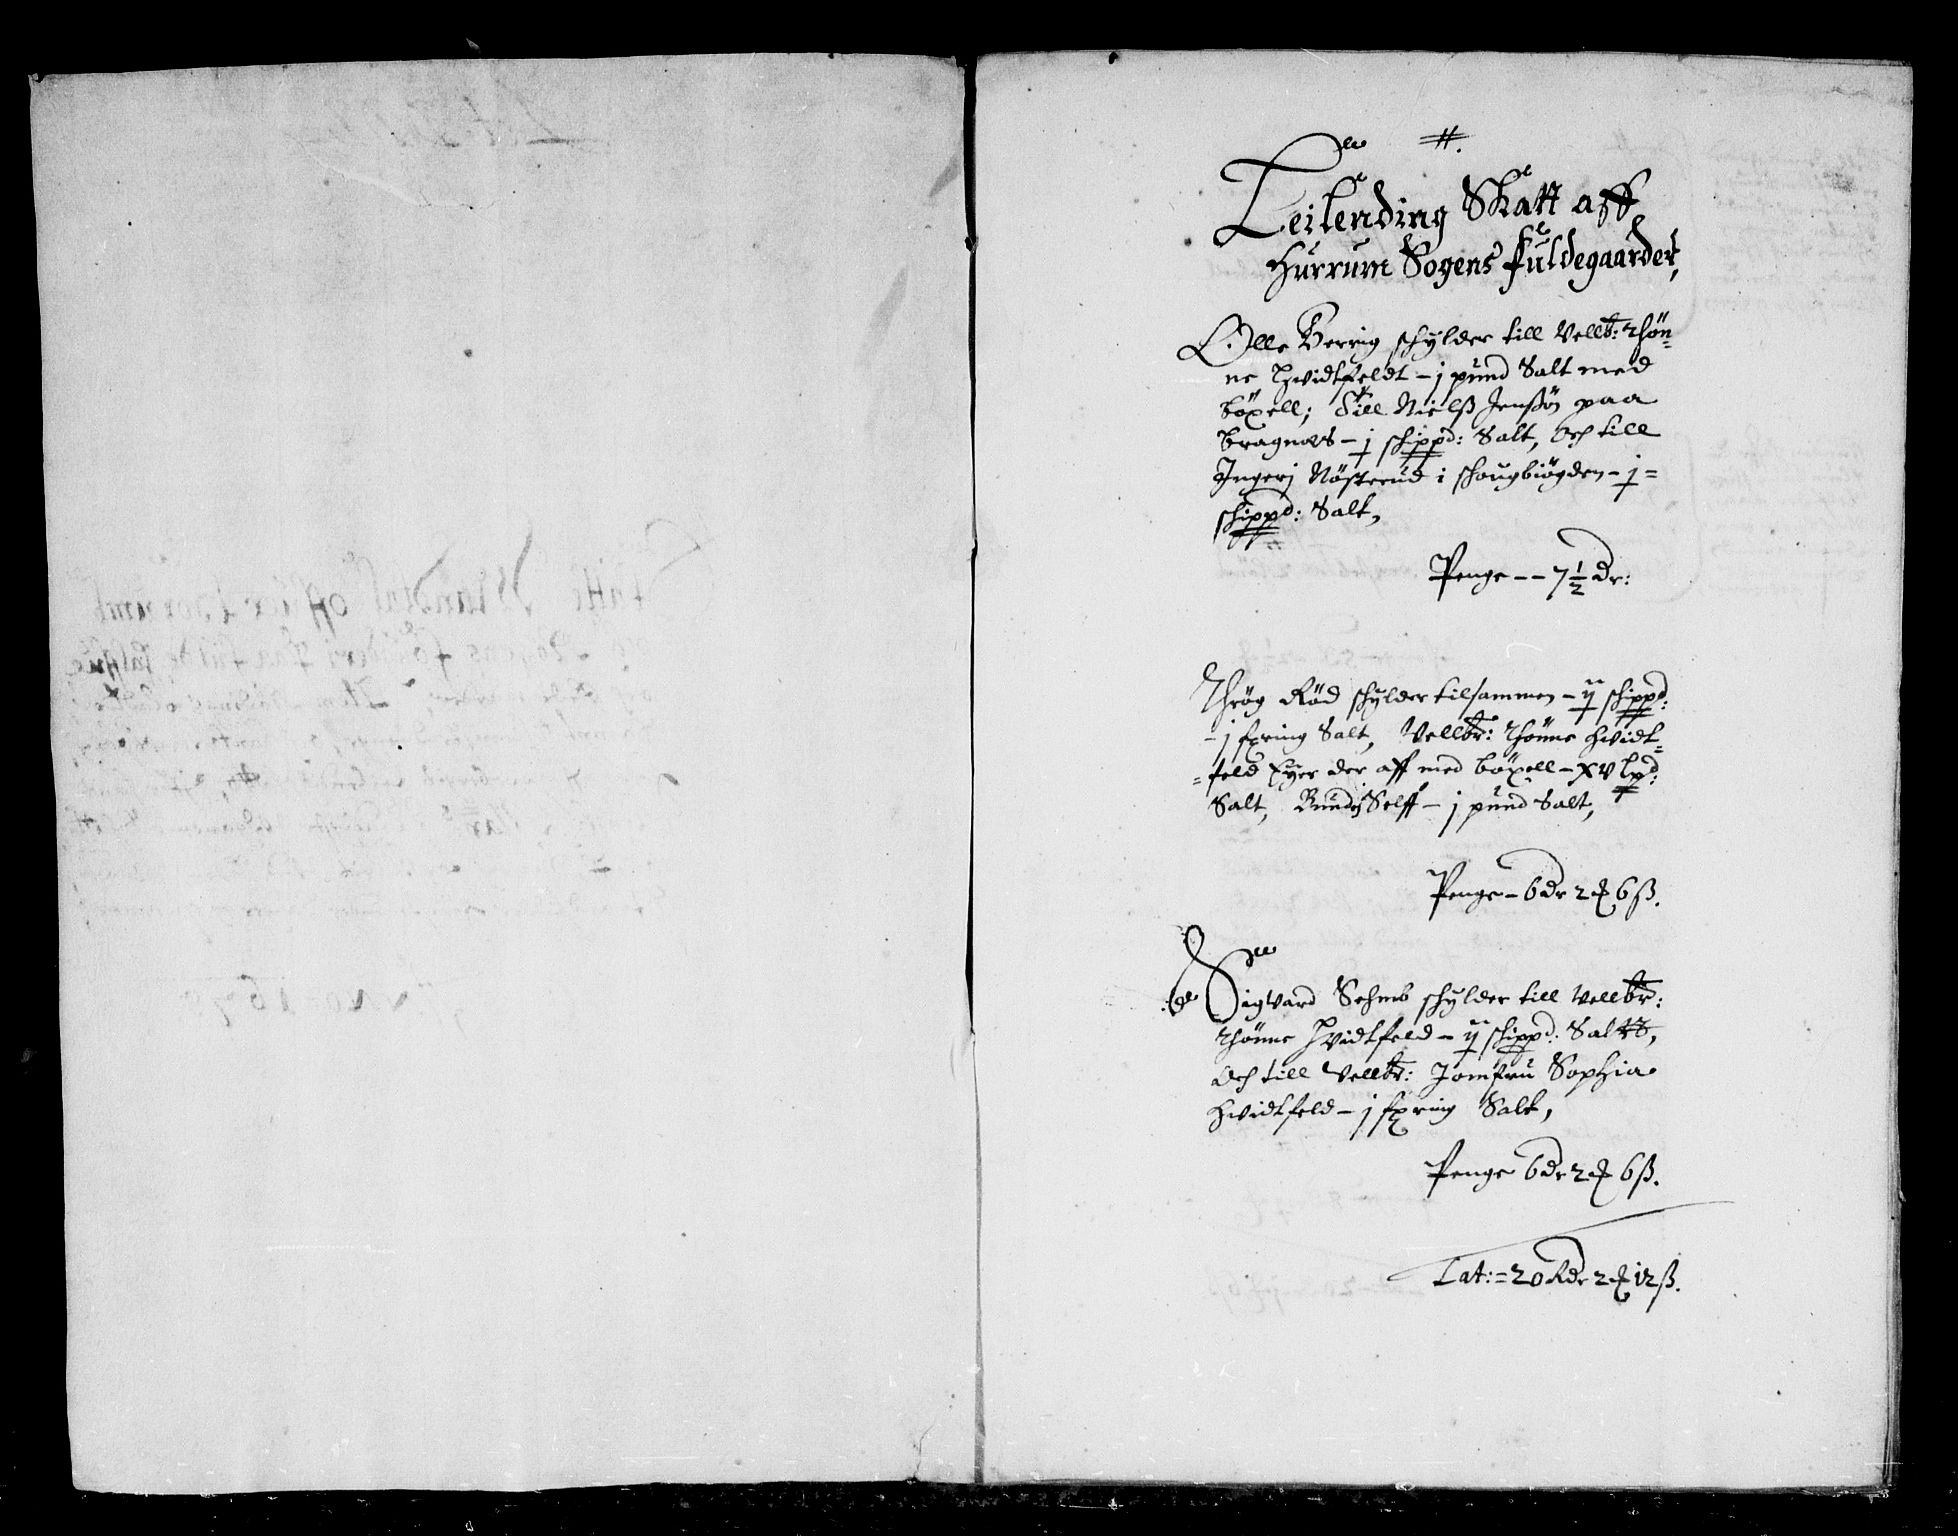 #.
Leilending Skatt aff
Hurrum Sogens fuldegaarder,
Olle Berrig schylder till Vellb: Thøn-
ne Hvidtfeldt - j pund Salt med
böxell; Till Nielß Jenßøn paa
Bragnes - j schippd: Salt, Och till
Ingerj Nösterud i schougbiögden - j =
schippd: Salt,
Penge - - 7½ dr:
Thrög Röd schylder tilsammen - ij schippd:
- j fxring Salt, Vellbr: Thønne Hvidt=
=feld Eyer der aff med böxell - xv lpd:
Salt, Bundj Selff - j pund Salt,
Penge - 6 dr 2 ℔ 6 ß.
Sigvard Sehmb schylder till Vellbr:
Thønne Hvidtfeld - ij schippd: Salt,
Och till Vellbr: Jomfru Sophia
Hvidtfeld - j fxring Salt,
Penge 6 dr 2 ℔ 6 ß.
Lat: = 20 Rdr 2 ℔ 12 ß.